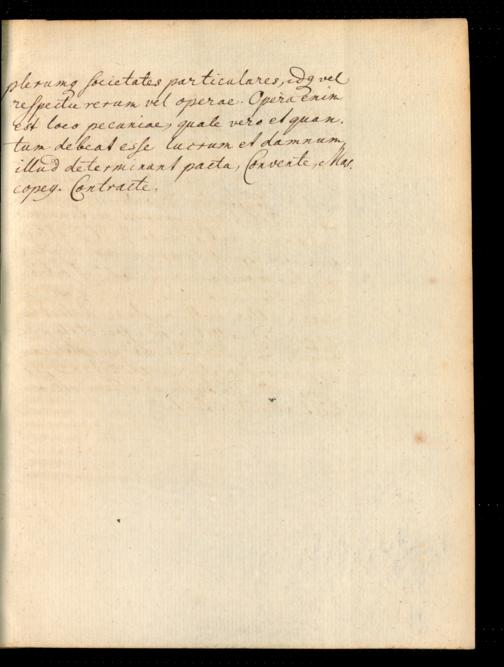 plerumq societates particulares, idq vel
respectu rerum vel operae. Opera enim
est loco pecuniae, quale vero et quan.
tum debeat esse lucrum et damnum,
illud determinant pacta, Convente, Mas.
copey. Contracte.